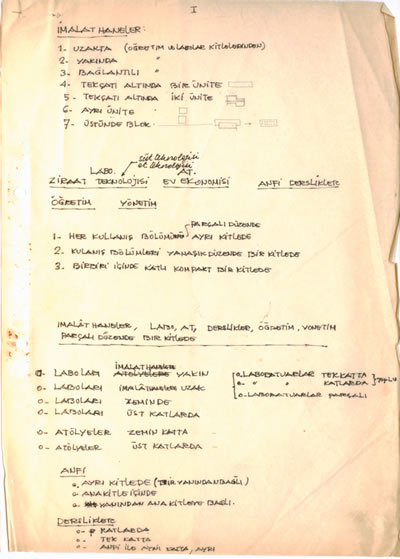 I
İMALAT HANELER:
1- UZAKTA (ÖĞRETİM VE LABOLAR KİTLELERİNDEN)
2- YAKINDA "
3- BAĞLANTILI "
4- TEKÇATI ALTINDA BİR ÜNİTE
5- TEKÇATI ALTINDA İKİ ÜNİTE
6- AYRI ÜNİTE
7- ÜSTÜNDE BLOK
süt teknolojisi
et teknolojisi
LABO. AT.
ZİRAAT TEKNOLOJİSİ EV EKONOMİSİ ANFİ DERSLİKLER
ÖĞRETİM YÖNETİM
PARÇALI DÜZENDE
1- HER KULLANIŞ BÖLÜMÜ AYRI KİTLEDE
2. KULANIŞ BÖLÜMLERİ YANAŞIK DÜZENDE BİR KİTLEDE
3. BİRBİRİ İÇİNDE KATLI KOMPAKT BİR KİTLEDE
İMALÂT HANELER, LABO, AT, DERSLİKLER, ÖĞRETİM, YÖNETİM
PARÇALI DÜZENDE BİR KİTLEDE
İMALATHANELERE
o- LABOLARI ATÖLYELERE YAKIN
o- LABOLARI İMALÂTHANELERE UZAK
o- LABOLARI ZEMİNDE
o- LABOLARI ÜST KATLARDA
o. LABORATUARLAR TEK KATTA
o. " " KATLARDA TOPLU
o- LABORATUARLAR PARÇALI
o- ATÖLYELER ZEMİN KATTA
o- ATÖLYELER ÜST KATLARDA
ANFİ
o. AYRI KİTLEDE (BİR YANINDAN BAĞLI)
o. ANAKİTLE İÇİNDE
o. YANINDAN ANA KİTLEYE BAĞLI.
DERSLİKLER
o- KATLARDA
o- TEK KATTA
o- ANFİ İLE AYNI KATTA, AYRI